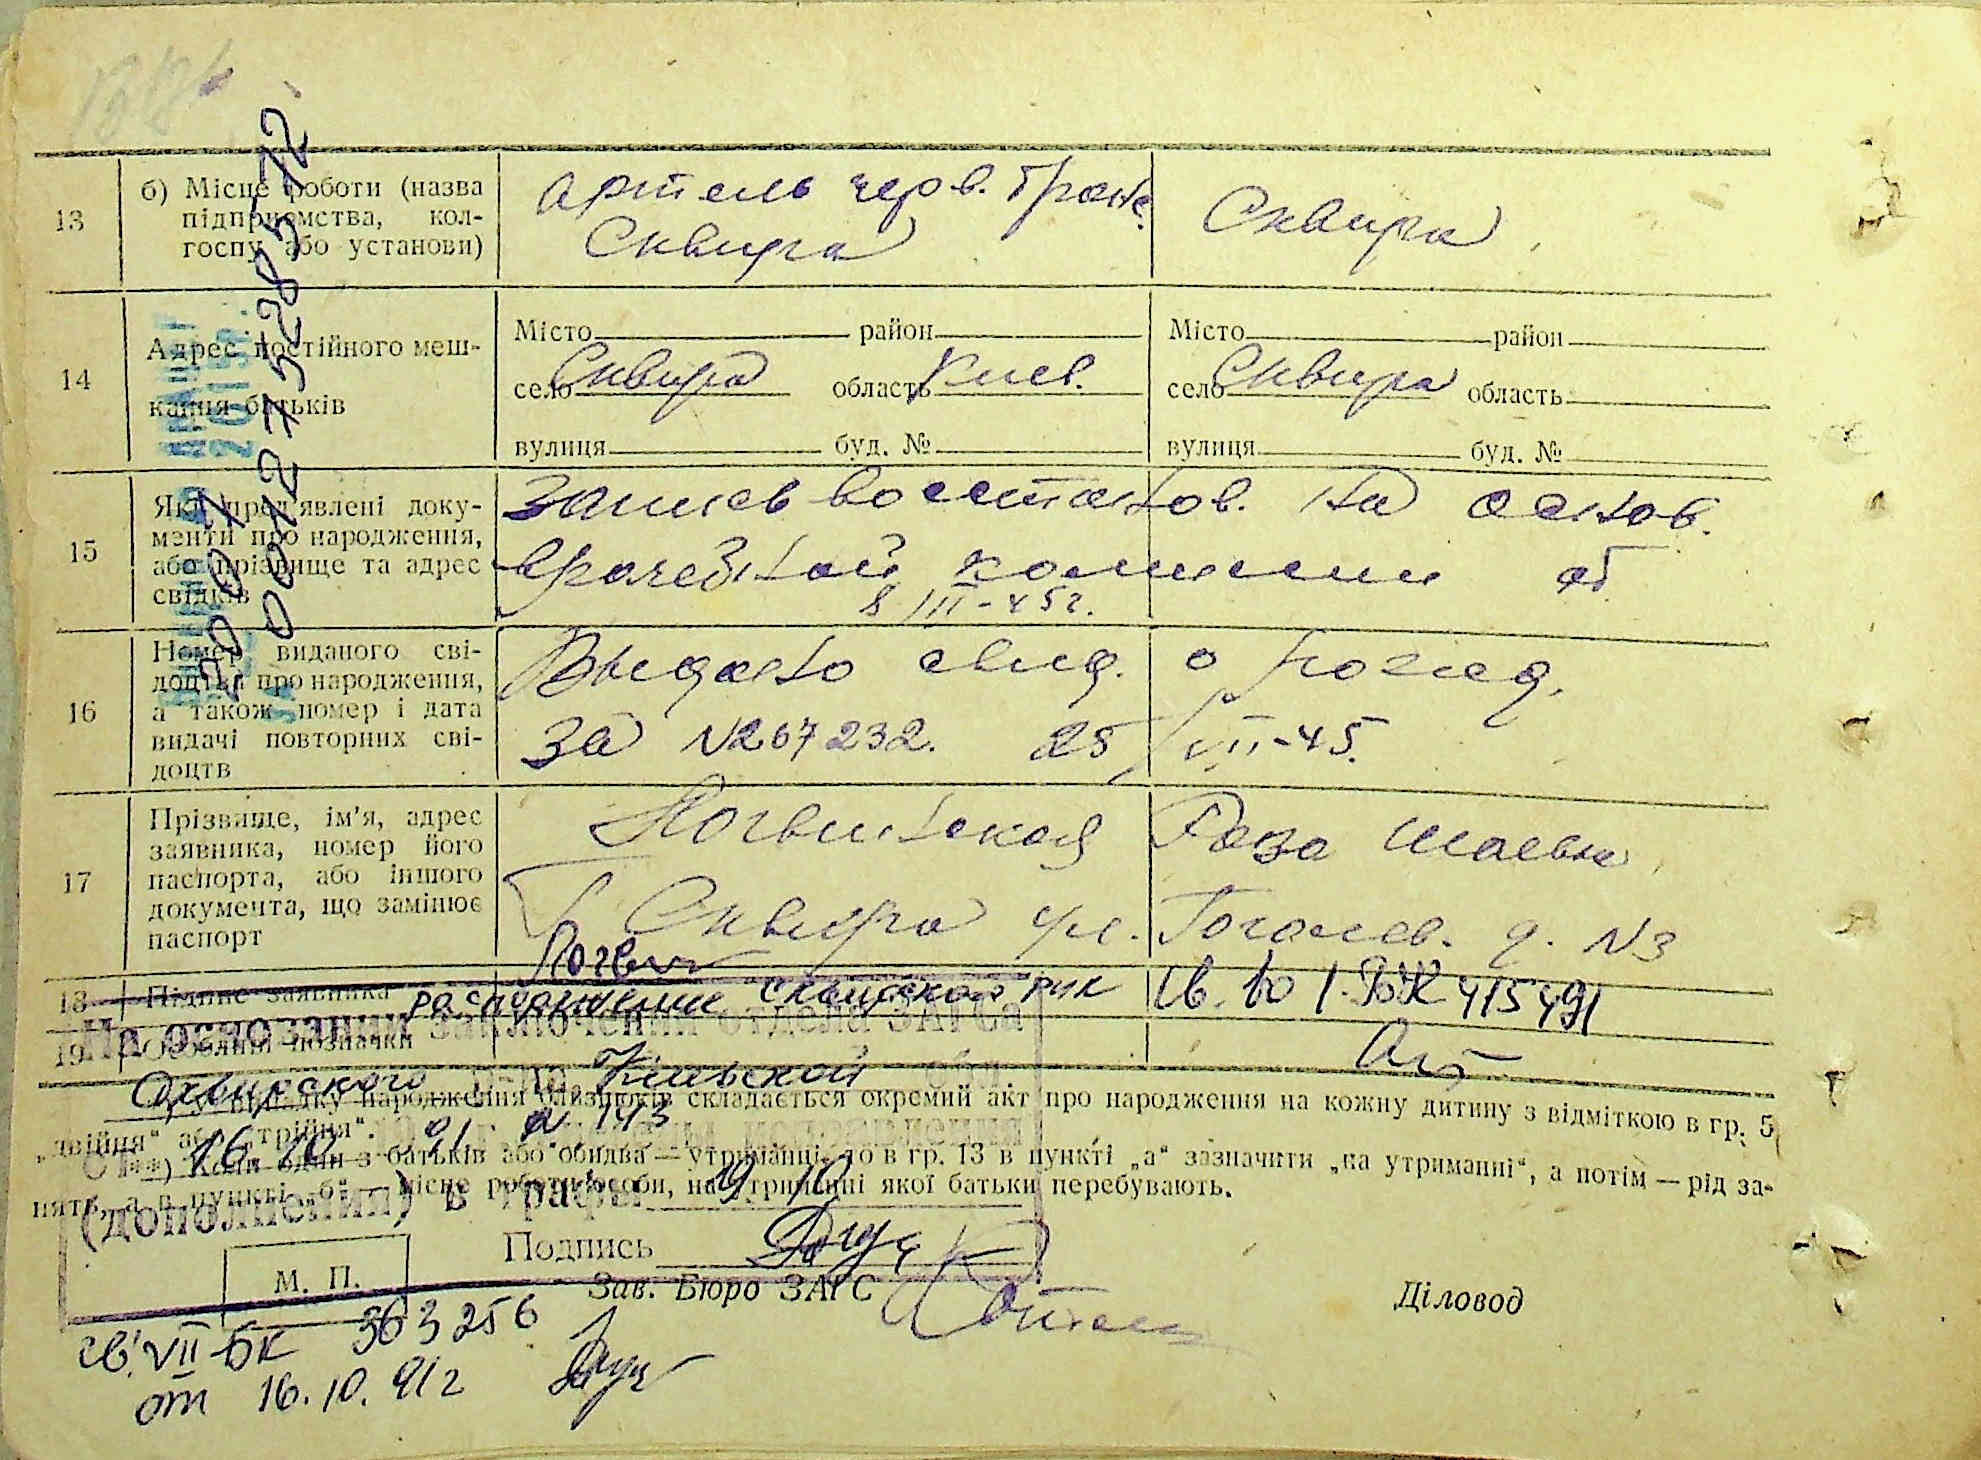 13
б) Місце роботи (назва
підприємства, кол-
госпу або установи)
артель черв. Транс.
Сквира
Сквира
14
Адрес постійного меш-
кання батьків
Місто район
село Сквира область Киев.
вулиця буд. №
Місто район
село Сквира область
вулиця буд. №
15
Які пред'явлені доку-
менти про народження,
або прізвище та адрес
свідків
Запись восстанов. на основ.
врачебной комиссии от
8/III-45г.
16
Номер виданого сві-
доцтва про народження,
а також номер і дата
видачі повторних сві-
доцтв
Выдано свид. о рожд.
за №267232. 25/VII-45.
17
Прізвище, ім'я, адрес
заявника, номер його
паспорта, або іншого
документа, що замінює
паспорт
Логвинская Роза Шаевна
Сквира ул. Гоголев. д. N3
18
Підпис заявника
19
Особливі позначки
распоряжении Сквирской рик
св. во 1-БЖ 415491
На основании заключения отдела ЗАГСа
Сквирского р-на Киевской обл.
16.10. 91 г. № 143
(дополнения) в графы 9, 10
Подпись
*) У випадку народження близнюків складається окремий акт про народження на кожну дитину з відміткою в гр. 5
„двійня“ або „трійня“.
**) Коли один з батьків або обидва — утриманці, то в гр. 13 в пункті „а“ зазначити „на утриманні“, а потім — рід за-
нять, а в пункті „б“ — місце роботи особи, на утриманні якої батьки перебувають.
М. П.
Зав. Бюро ЗАГС
Діловод
св. VII-БК 363256
от 16.10.91г
0012752835-12